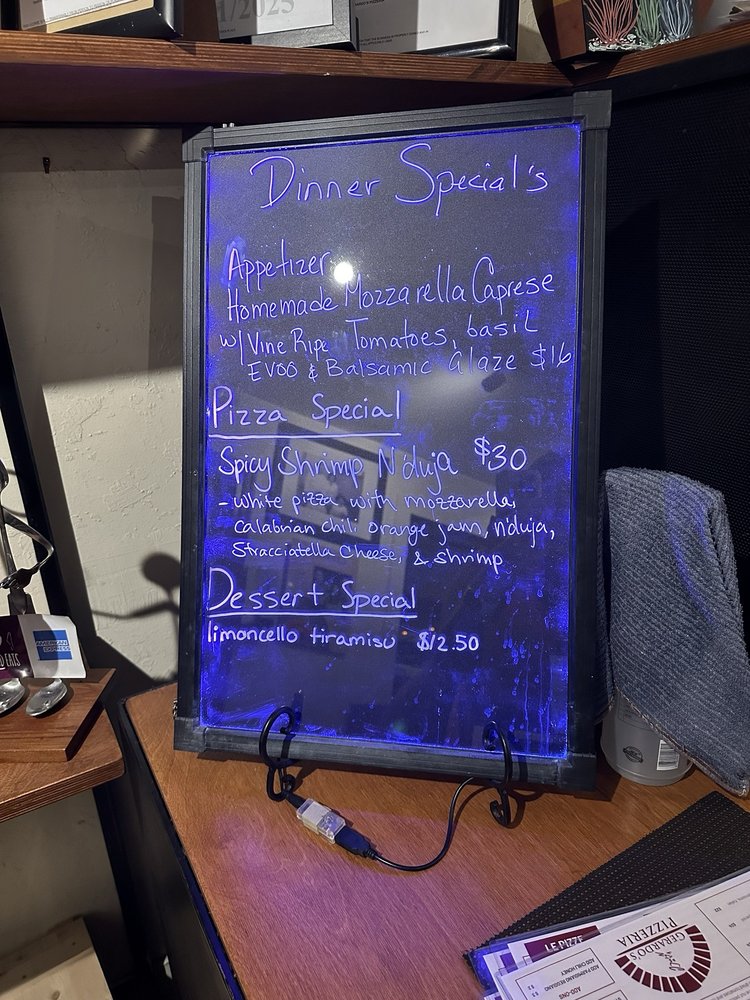 1/2025
Dinner Special's
Appetizer
Homemade Mozzarella Caprese
w/ Vine Ripe Tomatoes, basil
EVOO & Balsamic Glaze $16
Pizza Special
Spicy Shrimp N'duja $30
- white pizza with mozzarella,
calabrian chili orange jam, n'duja,
Stracciatella Cheese, & shrimp
Dessert Special
limoncello tiramisu $12.50
AMERICAN
EXPRESS
EATS
LE PIZZE
GERARDO'S
PIZZERIA
ADD PARMIGIANO REGGIANO
ADD CHILI HONEY
ADD-ONS